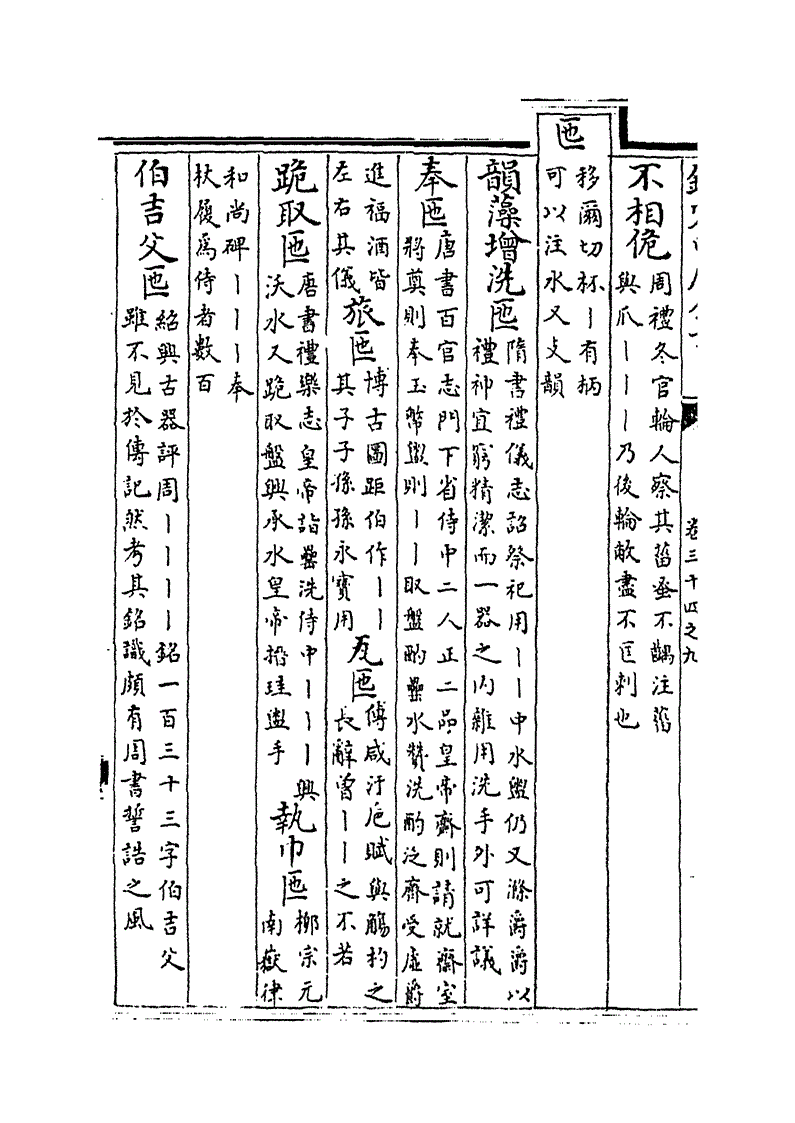 卷三十四之九
不相佹周禮冬官輪人察其菑蚤不齵注菑
與爪丨丨丨乃後輪敝盡不匡刺也
匜
移爾切杯丨有柄
可以注水又支韻
韻藻增洗匜隋書禮儀志詔祭祀用丨丨中水盥仍又滌爵爵以
禮神宜窮精潔而一器之内雜用洗手外可詳議
奉匜唐書百官志門下省侍中二人正二品皇帝齋則請就齋室
將奠則奉玉幣盥則丨丨取盤酌罍水贊洗酌泛齊受虛爵
進福酒皆
左右其儀旅匜博古圖距伯作丨丨
其子子孫孫永寶用瓦匜傅咸汙巵賦與觴杓之
長辭曾丨丨之不若
跪取匜唐書禮樂志皇帝詣罍洗侍中丨丨丨興
沃水又跪取盤興承水皇帝搢珪盥手執巾匜柳宗元
南嶽律
和尚碑丨丨丨奉
杖履爲侍者數百
伯吉父匜紹興古器評周丨丨丨丨銘一百三十三字伯吉父
雖不見於傳記然考其銘識頗有周書誓誥之風